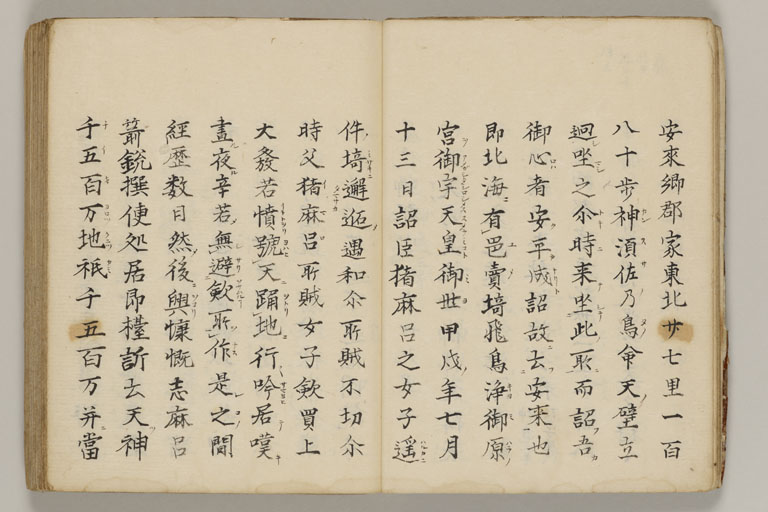 安來郷郡家東北廿七里一百
八十歩神湏佐乃烏命天壁立
𢌞坐之尒時来坐此𠩄而詔吾
御心者安平成詔故云安来也
即北海有邑賣埼飛鳥浄御原
宮御宇天皇御世甲戌年七月
十三日詔臣猪麻呂之女子遥
件埼邂逅遇和尒𠩄賊不切尒
時父猪麻呂𠩄賊女子歛買上
大發若憤號天踊地行吟居嘆
晝夜辛若無避歛𠩄作是之間
經歷数日然後興慷慨志麻呂
箭鋭撰便処居即樎訢云天神
千五百万地祇千五百万并當